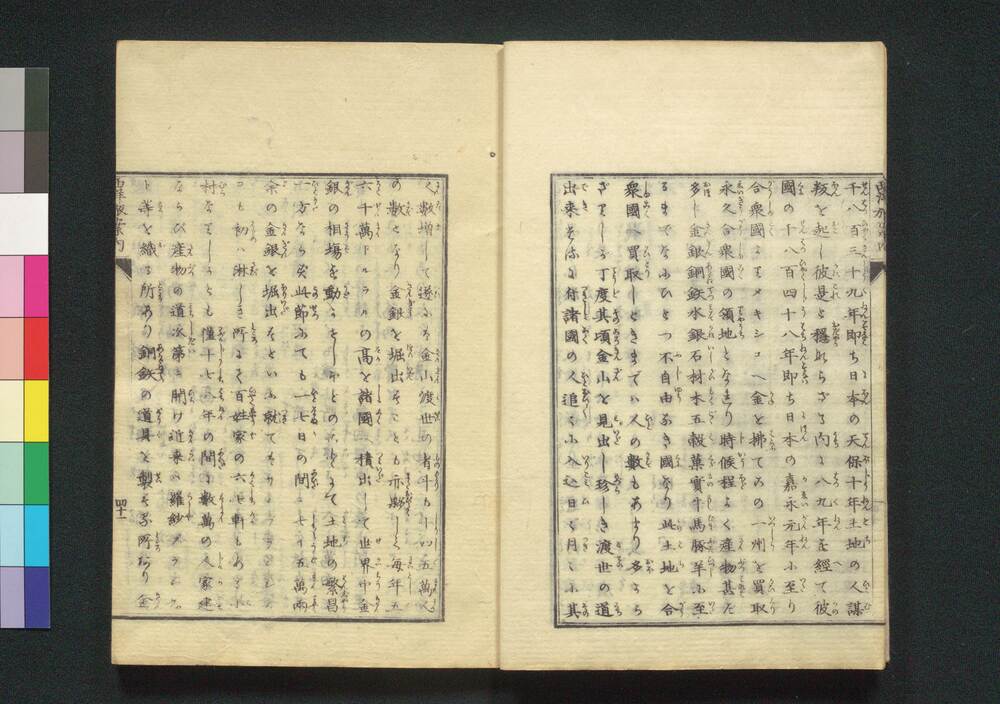 千八百三十九年即ち日本の天保十年土地の人謀
叛を起し彼是と穏ならざる内に八九年を経て彼
國の千八百四十八年即ち日本の嘉永元年に至り
合衆國よりメキシコへ金を拂て此の一州を買取
永久合衆國の領地となれり時候程よく産物甚だ
多し金銀銅鉄水銀石材木五穀菓實牛馬豚羊に至
るまでなにひとつ不自由なき國なり此土地を合
衆國へ買取しときまでハ人の數もあまり多から
ざりしが丁度其頃金山を見出し珍しき渡世の道
出来たるに付諸國の人追々に入込日に月に其
人數増して遂にハ金山渡世の者斗も十四五萬人
の數となり金銀を堀出すことも亦夥しく毎年五
六千萬ドルラルの高を諸國へ積出して世界中金
銀の相場を動かせしほどのことにて土地の繁昌
一方ならず此節にても一七日の間に七十五萬兩
余の金銀を堀出すといふ就てもサンフランシス
コも初ハ淋しき所にて百姓家の六七軒もあるし
村なりしかとも僅十七八年の間に數萬の人家建
ならび産物の道次第に開け近来ハ羅紗フランケ
ト等を織る所あり銅鉄の道具を製する所あり金
四十一